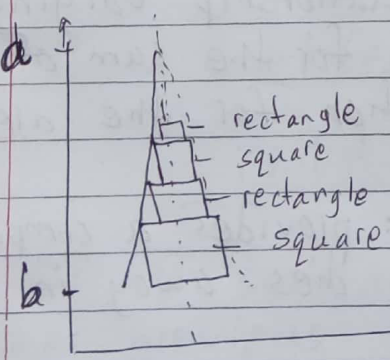 a
rectangle
square
rectangle
square
b